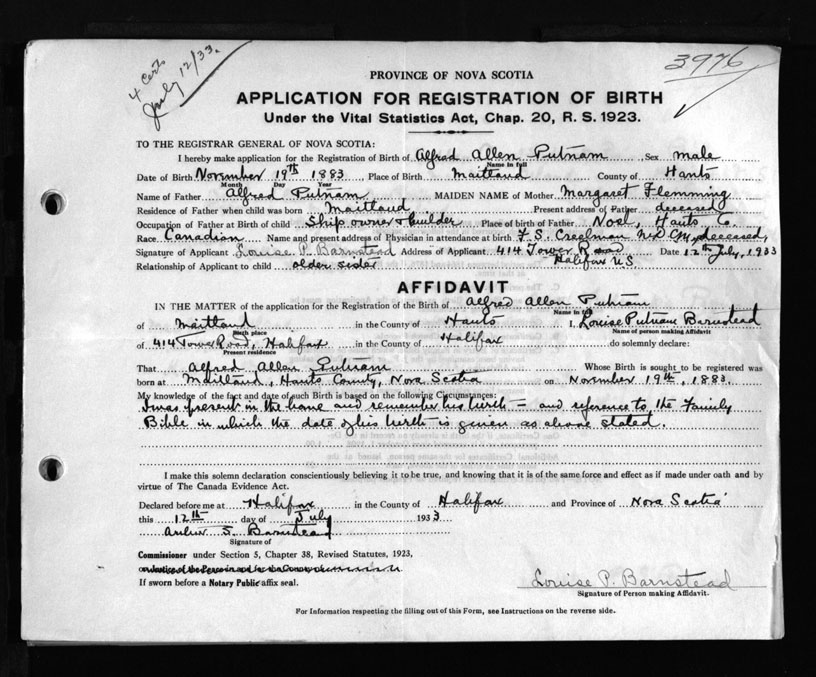 4 Certs
July 12/33.
3976
PROVINCE OF NOVA SCOTIA
APPLICATION FOR REGISTRATION OF BIRTH
Under the Vital Statistics Act, Chap. 20, R. S. 1923.
TO THE REGISTRAR GENERAL OF NOVA SCOTIA:
I hereby make application for the Registration of Birth of Alfred Allen Putnam Sex male
Name in full
Date of Birth November 19th 1883 Place of Birth Maitland County of Hants
Month Day Year
Name of Father Alfred Putnam MAIDEN NAME of Mother Margaret Flemming
Residence of Father when child was born Maitland Present address of Father deceased
Occupation of Father at Birth of child Ship owner & builder Place of birth of Father Noel, Hants Co.
Race Canadian Name and present address of Physician in attendance at birth F. S. Creelman M.D. C.M., deceased,
Signature of Applicant Louise P. Barnstead Address of Applicant 414 Tower Road Date 12th July, 1933
Relationship of Applicant to child older sister Halifax N.S
AFFIDAVIT
IN THE MATTER of the application for the Registration of the Birth of Alfred Allen Putnam
Name in full
of Maitland in the County of Hants I, Louise Putnam Barnstead
Birth place Name of person making Affidavit
of 414 Tower Road, Halifax in the County of Halifax do solemnly declare:
Present residence
That Alfred Allen Putnam Whose Birth is sought to be registered was
born at Maitland, Hants County, Nova Scotia on November 19th, 1883.
My knowledge of the fact and date of such Birth is based on the following Circumstances:
I was present in the home and remember his birth – and reference to the Family
Bible in which the date of his birth is given as above stated.
I make this solemn declaration conscientiously believing it to be true, and knowing that it is of the same force and effect as if made under oath and by
virtue of The Canada Evidence Act.
Declared before me at Halifax in the County of Halifax and Province of Nova Scotia
this 12th day of July 1933
Arthur S. Barnstead
Signature of
Commissioner under Section 5, Chapter 38, Revised Statutes, 1923,
If sworn before a Notary Public affix seal.
Louise P. Barnstead
Signature of Person making Affidavit.
For Information respecting the filling out of this Form, see Instructions on the reverse side.